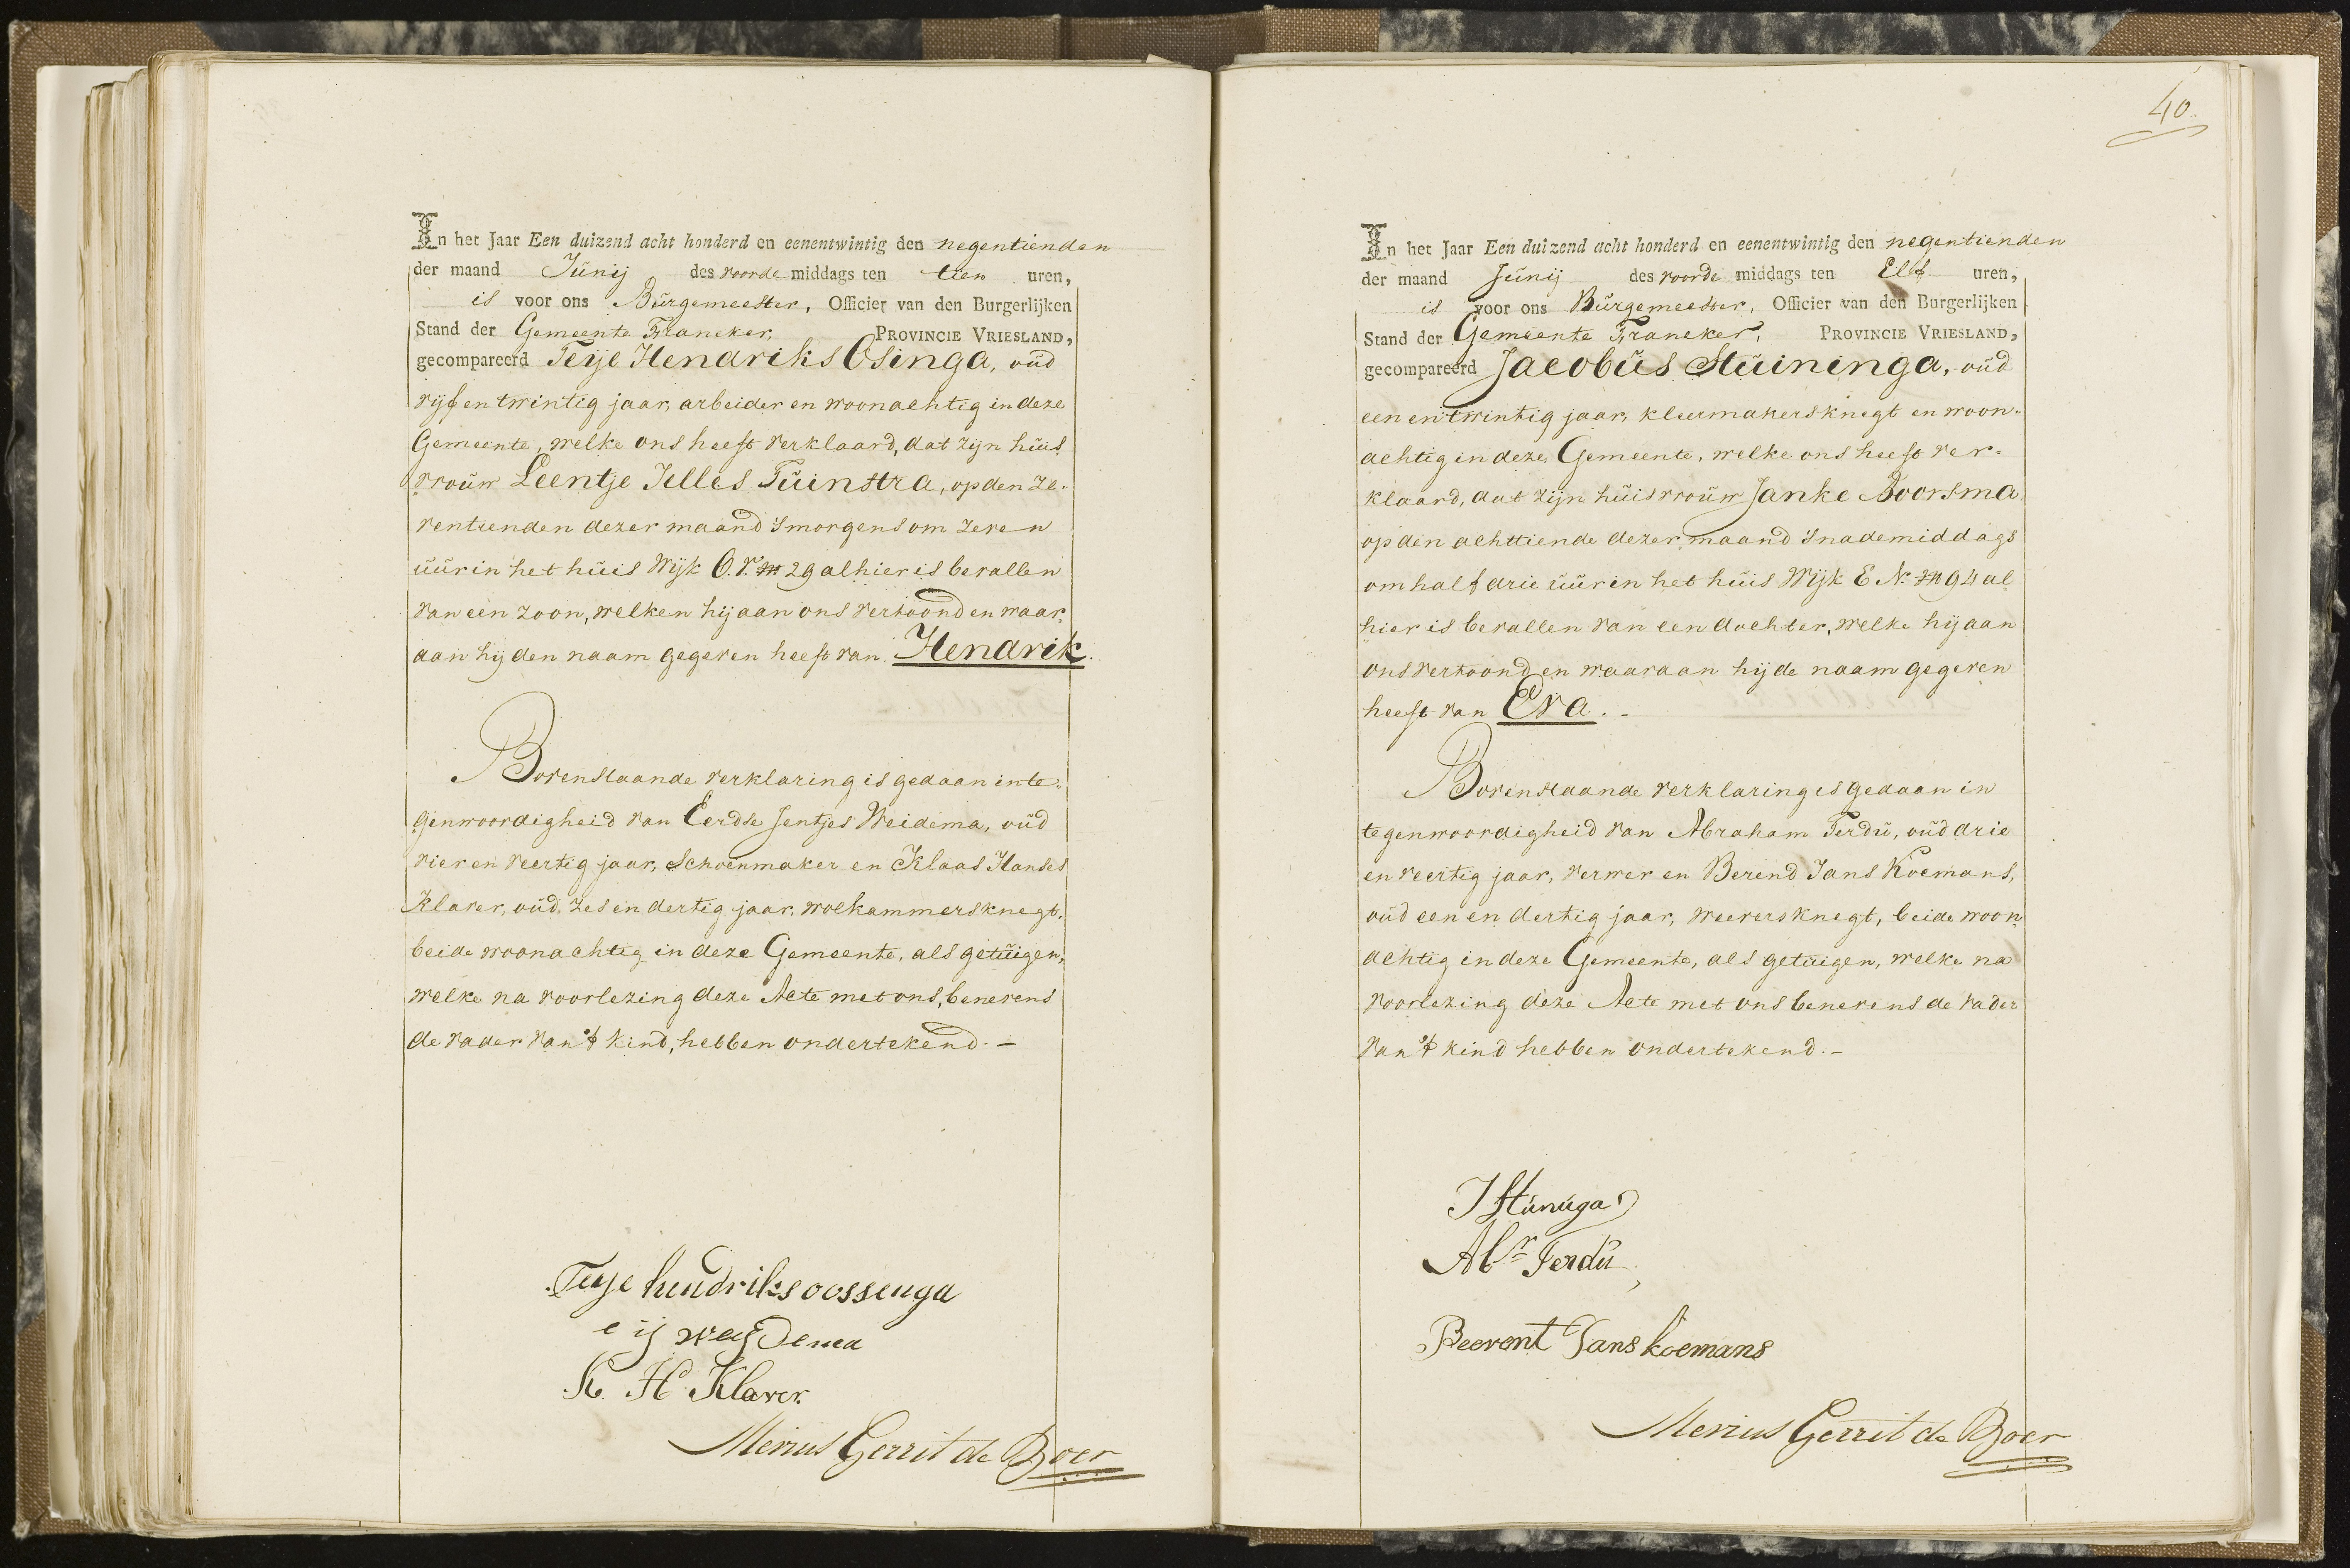 In het Jaar Een duizend acht honderd en eenentwintig den negentienden
der maand Junij des voorde middags ten tien uren,
is voor ons Burgemeester, Officier van den Burgerlijken
Stand der Gemeente Franeker, PROVINCIE VRIESLAND,
gecompareerd Teije Hendriks Osinga, oud
vijf en twintig jaar, arbeider en woonachtig in deze
Gemeente, welke ons heeft verklaard, dat zijn huis
vrouw Leentje Jelles Tuinstra, op den ze-
ventienden dezer maand 'smorgens om zeven
uur in het huis Wijk O. 29 alhier is bevallen
van een zoon, welken hij aan ons vertoond en waar
aan hij den naam gegeven heeft van Hendrik.
Bovenstaande verklaring is gedaan in te-
genwoordigheid van Eerdse Jentjes Weidema, oud
vier en veertig jaar, Schoenmaker en Klaas Hanses
Klaver, oud zes en dertig jaar, wolkammersknegt,
beide woonachtig in deze Gemeente, als getuigen,
welke na voorlezing deze Acte met ons, benevens
de vader van 't kind, hebben ondertekend. —
Teije hendriks oossenga
e ij weijdema
K. H. Klaver.
Menius Gerrit de Boer
40.
In het Jaar Een duizend acht honderd en eenentwintig den negentienden
der maand Junij des voorde middags ten Elf uren,
is voor ons Burgemeester, Officier van den Burgerlijken
Stand der Gemeente Franeker, PROVINCIE VRIESLAND,
gecompareerd Jacobus Stuininga, oud
een en twintig jaar, kleermakersknegt en woon-
achtig in deze Gemeente, welke ons heeft ver-
klaard, dat zijn huisvrouw Janke Boorsma
op den achttiende dezer maand 'snademiddags
om half drie uur in het huis Wijk E N. 94 al
hier is bevallen van een dochter, welke hij aan
ons vertoond en waaraan hij de naam gegeven
heeft van Eva. -
Bovenstaande verklaring is gedaan in
tegenwoordigheid van Abraham Ferdu, oud drie
en veertig jaar, verwer en Berend Jans Koemans,
oud een en dertig jaar, weversknegt, beide woon
achtig in deze Gemeente, als getuigen, welke na
voorlezing deze Acte met ons benevens de vader
van 't kind hebben ondertekend. -
J Stuniga
Abr Ferdu
Beerent Jans koemans
Menius Gerrit de Boer